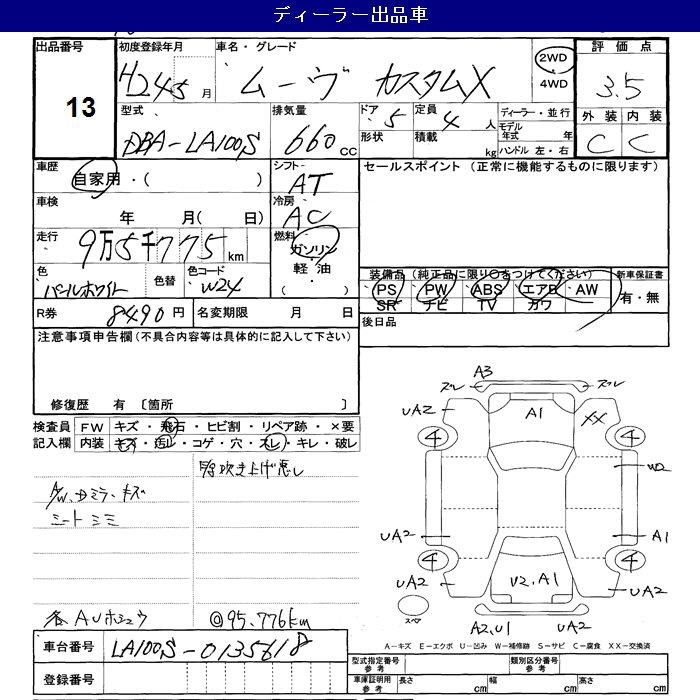 ディーラー出品車
出品番号
13
初度登録年月 車名・グレード
H24 5 月 ムーヴ カスタムX 2WD 4WD
評価点
3.5
外装 内装
C C
型式 排気量 ドア 定員 ディーラー・並行
DBA-LA100S 660 cc 5 4 人
形状 積載 kg
モデル年式 年
ハンドル 左・右
車歴 シフト セールスポイント(正常に機能するものに限ります)
自家用・( ) AT
車検 冷房
年 月( 日) AC
走行 燃料
9万5千775km ガソリン・軽油・( )
色 色替 色コード
パールホワイト W24
装備品(純正品に限り○をつけてください) 新車保証書
PS PW ABS エアB AW 有・無
SR ナビ TV カワ
R券 8490円 名変期限 月 日
後日品
注意事項申告欄(不具合内容等は具体的に記入して下さい)
修復歴 有 〔箇所 〕
検査員 FW キズ・飛石・ヒビ割・リペア跡・×要
記入欄 内装 キズ・汚レ・コゲ・穴・スレ・キレ・破レ
吹き上げ悪し
A/W、Dミラーキズ
シートシミ
各AUホシュウ ◎95,776km
A3
スレ スレ
UA2 A1 XX
4 4
W2
UA2 A1
4 4
UA2 U2、A1 UA2
スペア
A2、U1 UA2
A-キズ E-エクボ U-凹み W-補修跡 S-サビ C-腐食 XX-交換済
車台番号 LA100S-0135618
登録番号
型式指定番号 参考 類別区分番号 参考
車庫証明用 参考 長さ cm 幅 cm 高さ cm